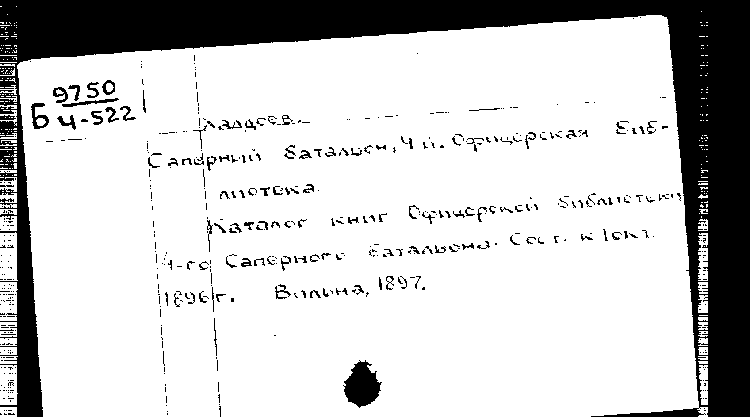 9750
Б Ч-522
Саперный батальон, 4 й. Офицерская биб-
лиотека.
Каталог книг Офицерской библиотеки
4-го Саперного батальона. Сост. к 1 окт.
1896 г. Вильна, 1897.